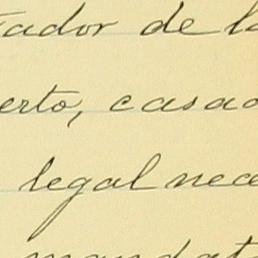 tador de la
erto, casado
legal nece
mandat